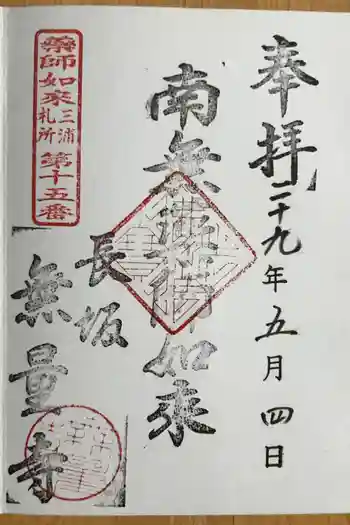 奉拝
二十九年五月四日
南無薬師如来
藥師如來
三浦
札所
第十五番
長坂
無量寺